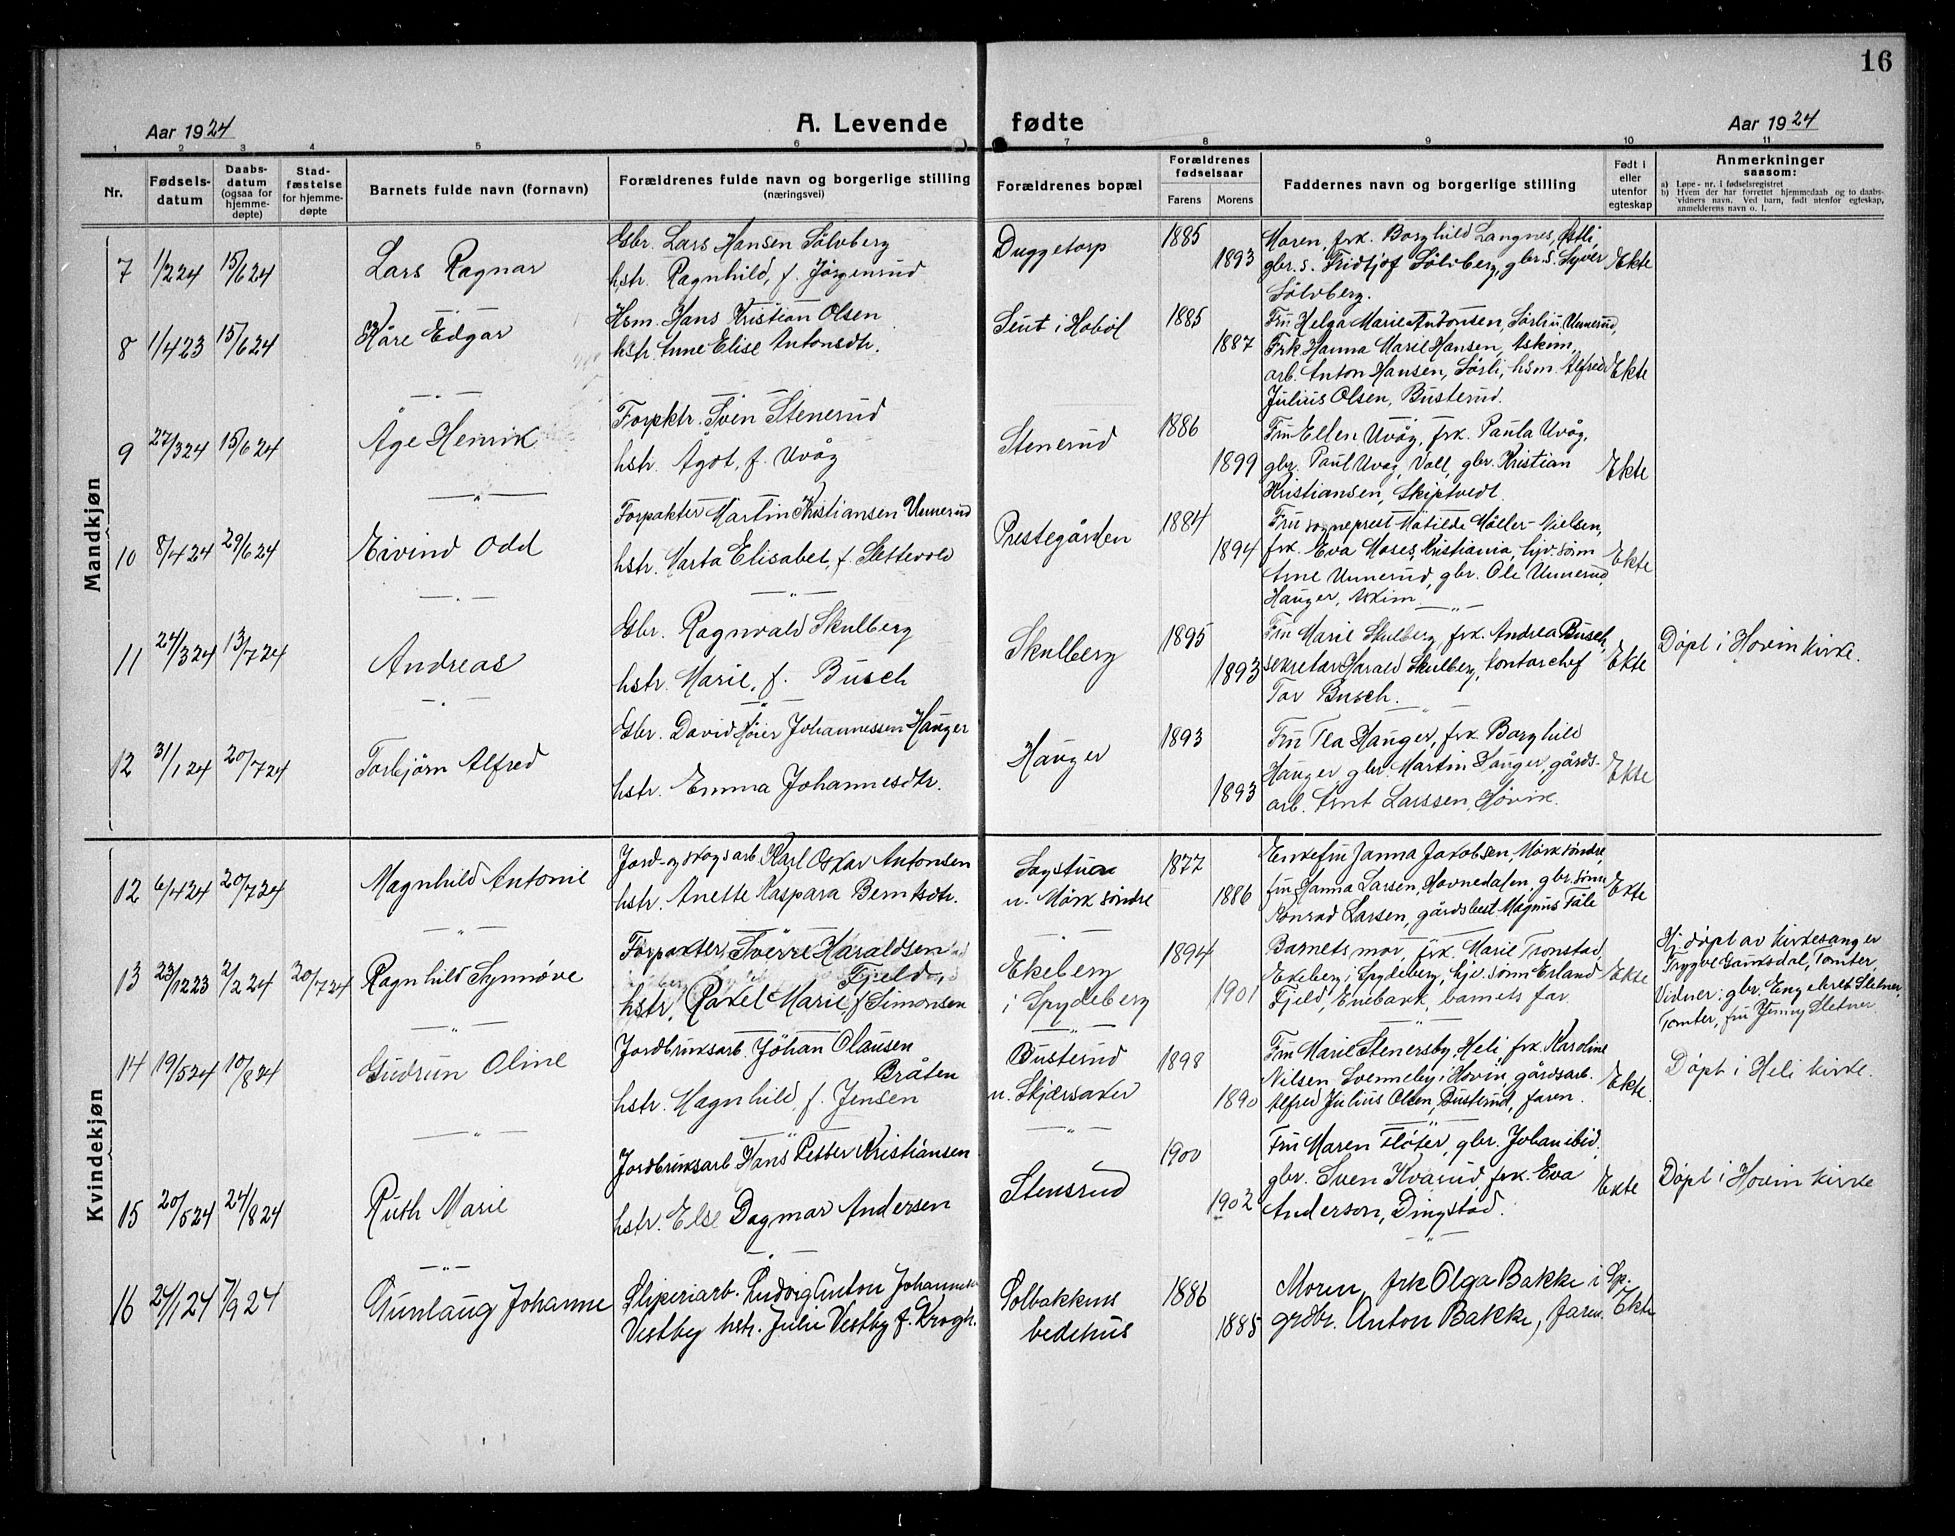 16
Aar 1924
A. Levende fødte
Aar 1924
1 2 3 4 5 6 7 8 9 10 11
Nr.
Fødsels-
datum
Daabs-
datum
(ogsaa for
hjemme-
døpte)
Stad-
fæstelse
for hjemme-
døpte
Barnets fulde navn (fornavn)
Forældrenes fulde navn og borgerlige stilling
(næringsvei)
Forældrenes bopæl
Forældrenes
fødselsaar
Farens Morens
Faddernes navn og borgerlige stilling
Født i
eller
utenfor
egteskap
Anmerkninger
saasom:
a) Løpe-nr. i fødselsregistret
b) Hvem der har forrettet hjemmedaab og to daabs-
vidners navn. Ved barn, født utenfor egteskap,
anmelderens navn o. l.
Mandkjøn
7 1/2 24 15/6 24
Lars Ragnar
Gbr. Lars Hansen Sölvberg
hstr. Ragnhild, f. Jörgensrud
Duggetorp
1885
1893
Moren, frk. Borghild Langnes,
gbr.s. Fridtjof Sölvberg, gbr.s. Syver
Sölvberg.
Ekte
8 1/4 23 15/6 24
Kåre Edgar
Hsm. Hans Kristian Olsen
hstr. Anne Elise Antonsdtr.
Seut i Hobøl
1885
1887
Fru Helga Marie Antonsen, Sörli u. Unnerud,
Frk. Hanna Marie Hansen, Askim,
arb. Anton Hansen, Sörli, hsm. Alfred
Julius Olsen, Busterud.
Ekte
9 27/3 24 15/6 24
Åge Henrik
Forpktr. Sven Stenerud
hstr. Ågot, f. Uvåg
Stenerud
1886
1899
Fru Ellen Uvåg, frk. Paula Uvåg,
gbr. Paul Uvåg, Voll, gbr. Kristian
Kristiansen, Skiptvedt.
Ekte
10 8/4 24 29/6 24
Eivind Odd
Forpakter Martin Kristiansen Unnerud
hstr. Marta Elisabet, f. Slettevold
Prestegården
1884
1894
Fru sogneprest Matilde Möller-Nielsen,
frk. Eva Moses, Kristiania, hjv. sönn
Arne Unnerud, gbr. Ole Unnerud,
Hauger, Askim
Ekte
11 24/3 24 13/7 24
Andreas
Gbr. Ragnvald Skulberg
hstr. Marie, f. Busch
Skulberg
1895
1893
Fru Marie Skulberg, frk. Andrea Busch,
sekretær Harald Skulberg, kontorchef
Tor Busch.
Ekte
Döpt i Hovin kirke.
12 31/1 24 20/7 24
Torbjörn Alfred
Gbr. David Höier Johannessen Hauger
hstr. Emma Johannesdtr.
Hauger
1893
1893
Fru Tea Hauger, frk. Borghild
Hauger, gbr. Martin Hauger, gårds-
arb. Arnt Larssen, Hövik.
Ekte
Kvindekjøn
12 6/4 24 20/7 24
Magnhild Antonie
Jord- og skogsarb. Karl Oskar Antonsen
hstr. Anette Kaspara Berntsdtr.
Sagstuen
u. Mörk söndre
1877
1886
Enkefru Janna Jakobsen, Mörk söndre,
fru Hanna Larsen, Hovnedalen, gbr. sönn
Konrad Larsen, gårdsbest. Magnus Tåle
Ekte
13 23/12 23 2/2 24 20/7 24
Ragnhild Synnöve
Forpakter Sverre Haraldsen
Fjeld,
hstr. Rakel Marie f. Simonsen
Ekeberg
i Spydeberg
1894
1901
Barnets mor, frk. Marie Tronstad,
Ekeberg i Spydeberg, hjv. sönn Erland
Fjeld, Enebakk, barnets far.
Ekte
Hj. döpt av kirkesanger
Trygve Gamsdal, Tomter
Vidner: gbr. Engelbret Sletner,
Tomter, fru Jenny Sletner
14 19/5 24 10/8 24
Gudrun Oline
Jordbruksarb. Johan Olausen
Bråten
hstr. Magnhild, f. Jensen
Busterud
u. Skjærsaker
1898
1890
Fru Marie Stenersby, Heli, frk. Karoline
Nilsen, Svenneby i Hovin, gårdsarb.
Alfred Julius Olsen, Busterud, faren.
Ekte.
Döpt i Heli kirke.
15 20/5 24 24/8 24
Ruth Marie
Jordbruksarb. Hans Petter Kristiansen
hstr. Else Dagmar Andersen
Stensrud
1900
1902
Fru Maren Flöter, gbr. Johan ibid.
gbr. Sven Kvarud, frk. Eva
Anderson, Dingstad.
Ekte
Döpt i Hovin kirke
16 24/1 24 7/9 24
Gunlaug Johanne
Sliperiarb. Ludvig Anton Johannesen
Vestby hstr. Julie Vestby f. Krogh.
Solbakkens
bedehus
1886
1885
Moren, frk Olga Bakke i Sp.
grdbr. Anton Bakke, faren.
Ekte